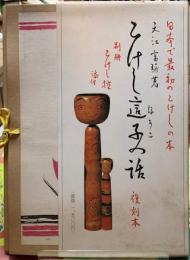 日本で最初のこけしの本
天江富弥著
こけし這子の話
ほうこ
復刻本
別冊
こけし控
添付